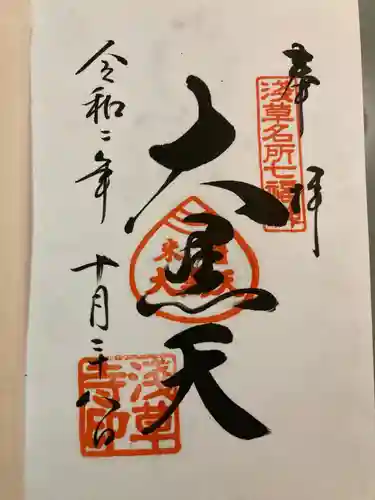 奉拝
浅草名所七福神
大黒天
米 大黒天
令和二年
十月二十八日
浅草寺印